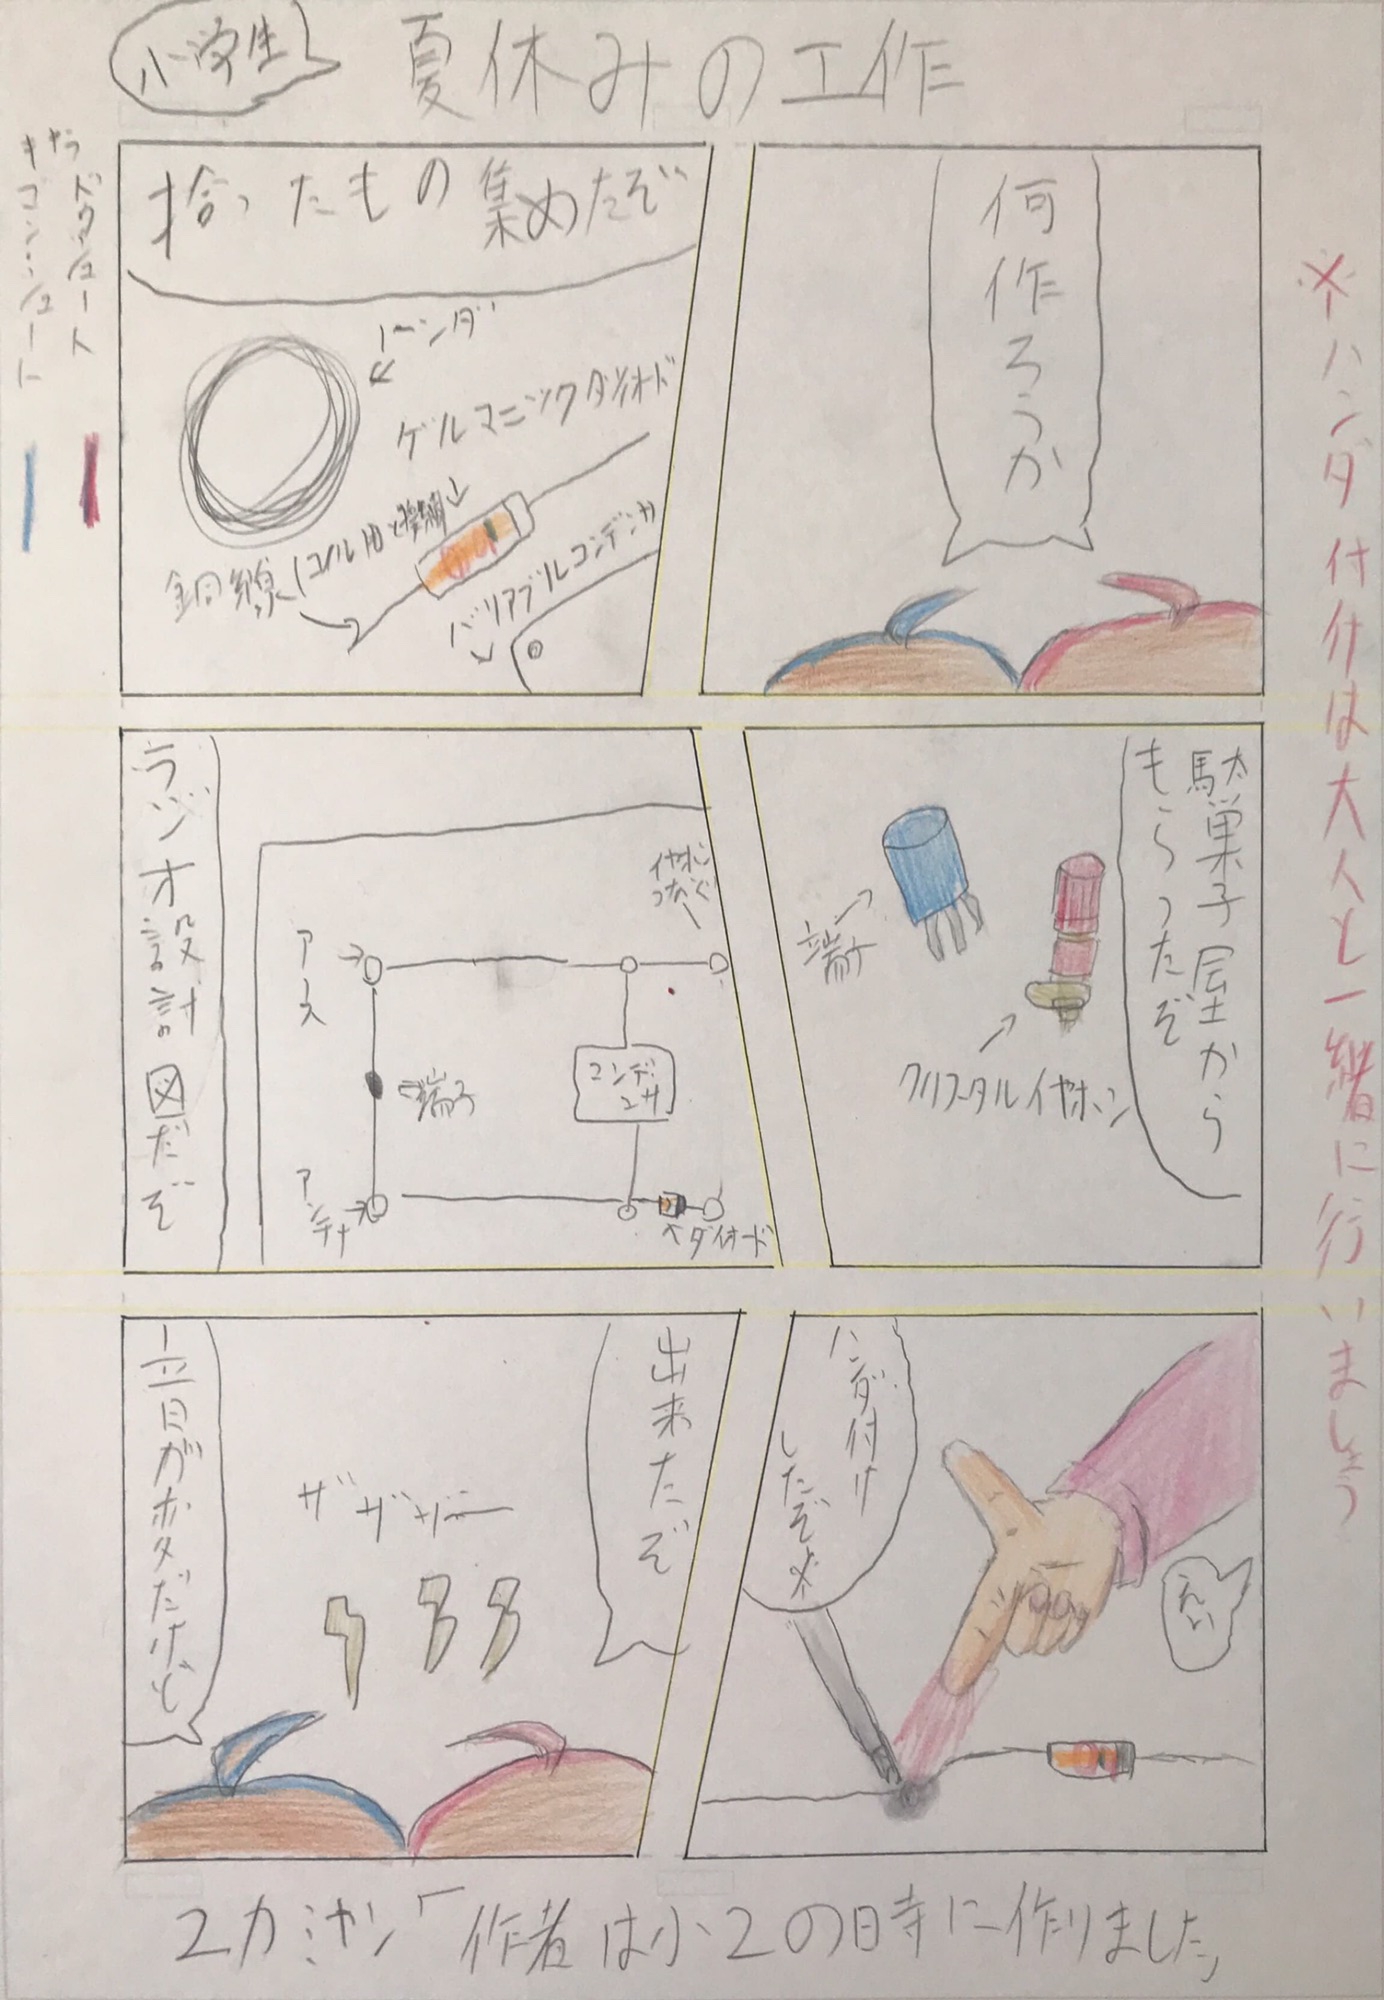 小学生
夏休みの工作
※ハンダ付けは大人と一緒に行いましょう
何作ろうか
拾ったもの集めたぞ
ハンダ
ゲルマニックダイオド
銅線(コイル用と接続
バリアブルコンデンサ
駄菓子屋から
もらったぞ
端子
クリスタルイヤホン
ラジオ設計図だぞ
イヤホン
つなぐ
アース
端子
コンデ
ンサ
アンテナ
ダイオード
ハンダ付け
したぞ※
出来たぞ
ザザザー
音がボダだけど
作者は小2の時に作りました